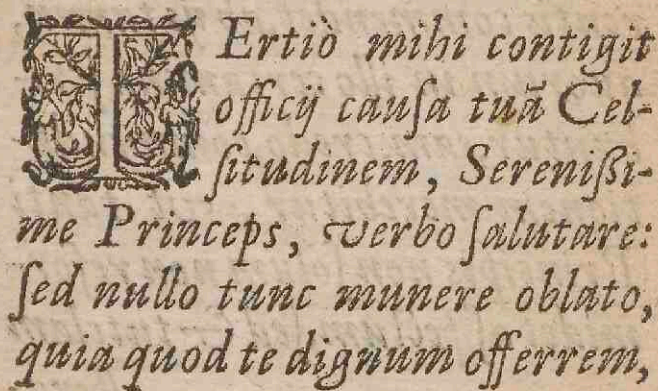 TErtiò mihi contigit
officij cauſa tuã Cel-
ſitudinem, Sereniſſi-
me Princeps, verbo ſalutare:
ſed nullo tunc munere oblato,
quia quod te dignum offerrem,